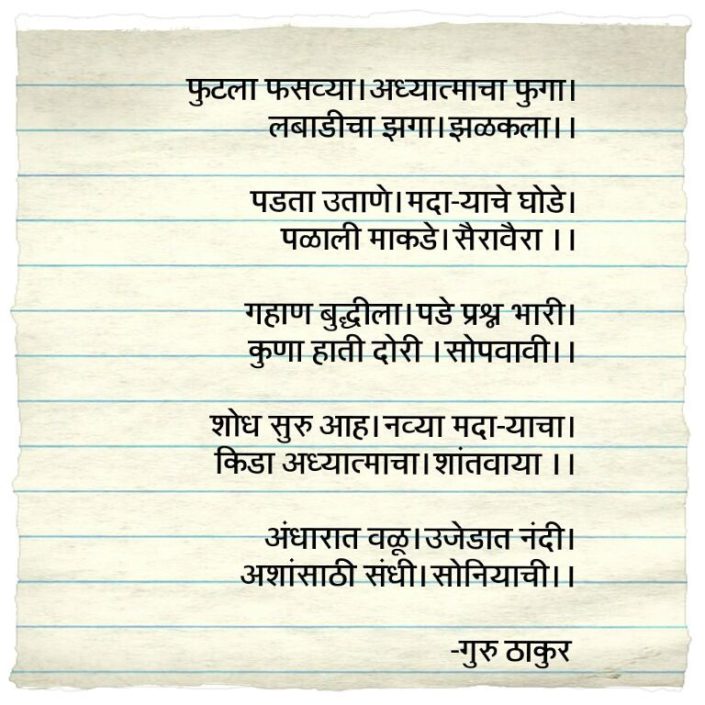 फुटला फसव्या।अध्यात्माचा फुगा।
लबाडीचा झगा।झळकला।।
पडता उताणे।मदा-याचे घोडे।
पळाली माकडे।सैरावैरा ।।
गहाण बुद्धीला।पडे प्रश्न भारी।
कुणा हाती दोरी ।सोपवावी।।
शोध सुरु आह।नव्या मदा-याचा।
किडा अध्यात्माचा।शांतवाया ।।
अंधारात वळू।उजेडात नंदी।
अशांसाठी संधी।सोनियाची।।
-गुरु ठाकुर